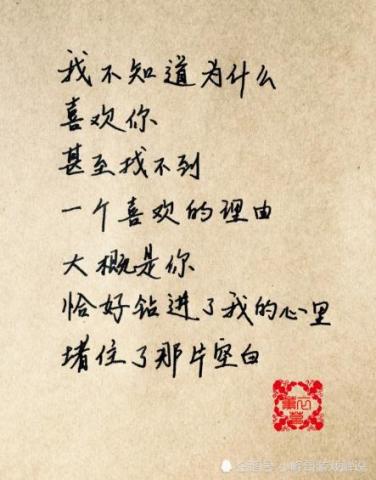 我不知道为什么
喜欢你
甚至找不到
一个喜欢的理由
大概是你
恰好钻进了我的心里
堵住了那片空白